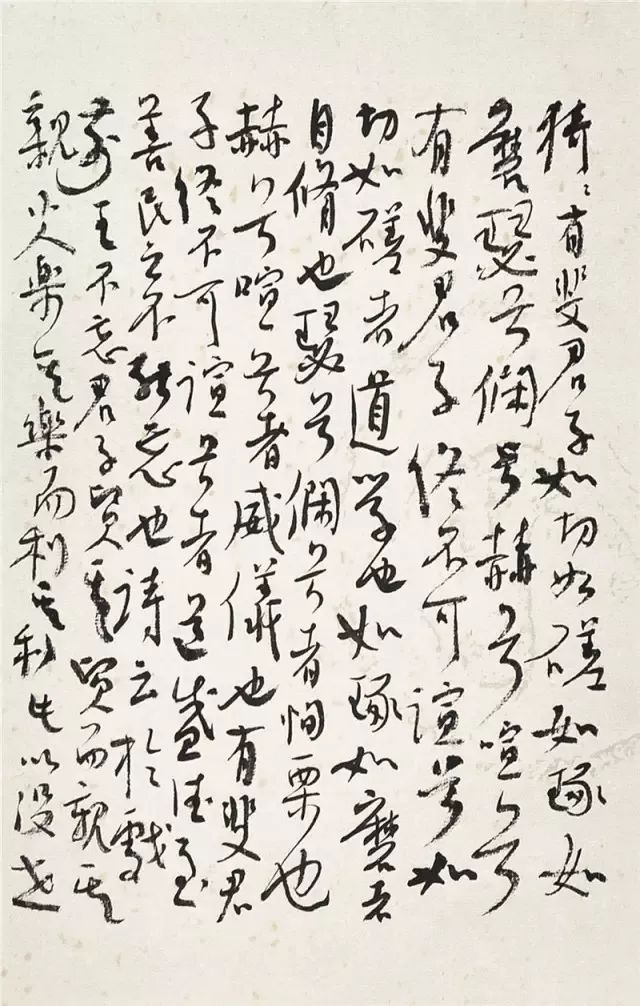 猗〻有斐君子如切如磋如琢如
磨瑟兮僩兮赫兮喧兮
有斐君子終不可諠兮如
切如磋者道学也如琢如磨者
自脩也瑟兮僩兮者恂栗也
赫兮喧兮者威儀也有斐君
子終不可諠兮者道盛德至
善民之不能忘也詩云於戲
前王不忘君子賢其賢而親其
親小人樂其樂而利其利此以没世